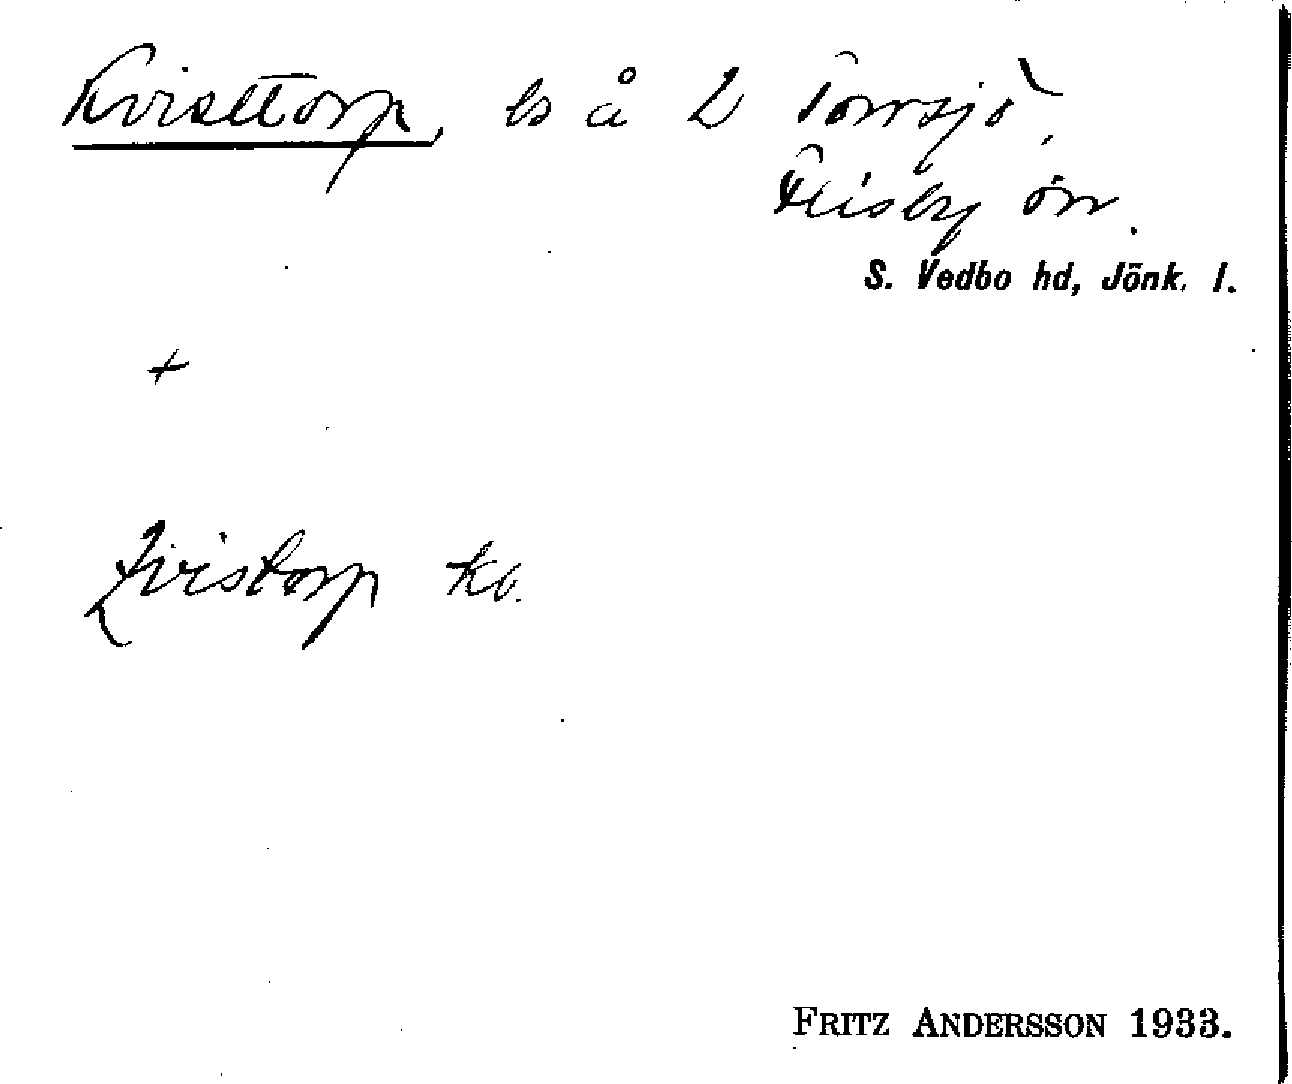 Kvisttorp, ls å 2 Torrsjö,
Flisby sn.
S. Vedbo hd, Jönk. l.
+
Qvistorp kb.
FRITZ ANDERSSON 1933.